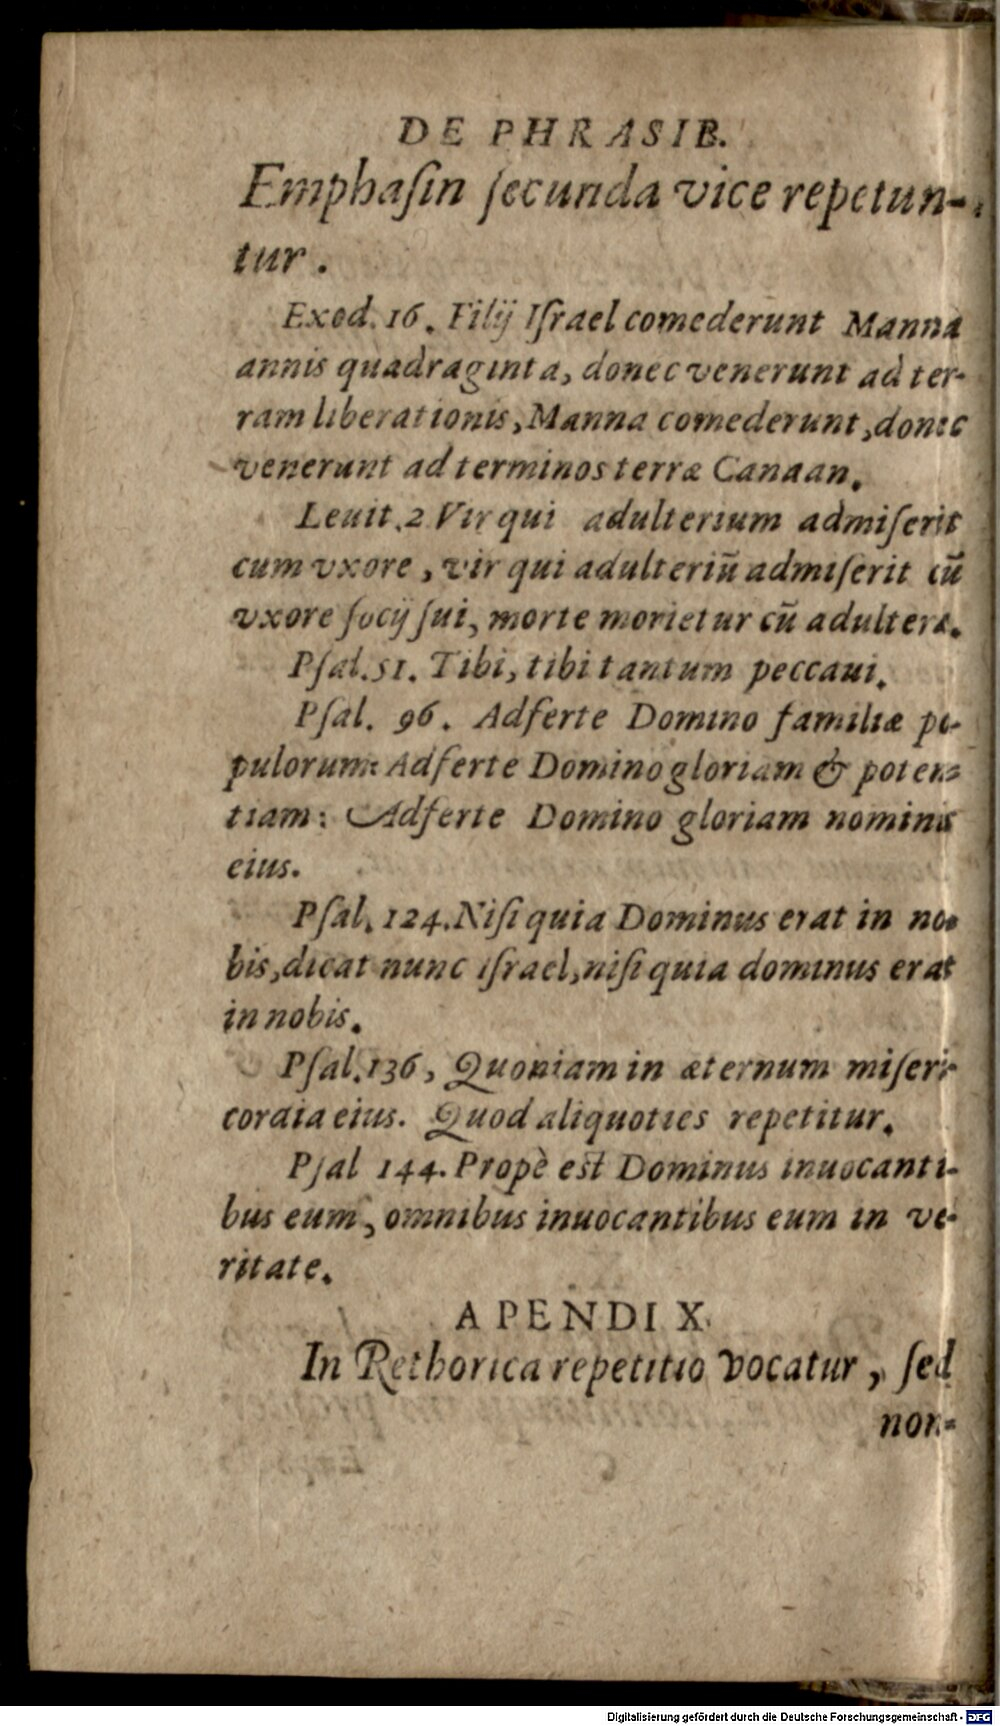 DE PHRASIB.
Emphaſin ſecunda vice repetun-
tur.
Exod. 16. Filij Iſrael comederunt Manna
annis quadraginta, donec venerunt ad ter-
ram liberationis, Manna comederunt, donec
venerunt ad terminos terræ Canaan.
Leuit. 2 Vir qui adulterium admiſerit
cum vxore, vir qui adulteriū admiſerit cū
vxore ſocij ſui, morte morietur cū adultera.
Pſal. 51. Tibi, tibi tantum peccaui.
Pſal. 96. Adferte Domino familiæ po-
pulorum: Adferte Domino gloriam & poten-
tiam: Adferte Domino gloriam nominis
eius.
Pſal. 124. Niſi quia Dominus erat in no-
bis, dicat nunc iſrael, niſi quia dominus erat
in nobis.
Pſal. 136, Quoniam in æternum miſeri-
cordia eius. Quod aliquoties repetitur.
Pſal 144. Propè est Dominus inuocanti-
bus eum, omnibus inuocantibus eum in ve-
ritate.
APENDIX.
In Rethorica repetitio vocatur, ſed
non-
Digitalisierung gefördert durch die Deutsche Forschungsgemeinschaft - DFG